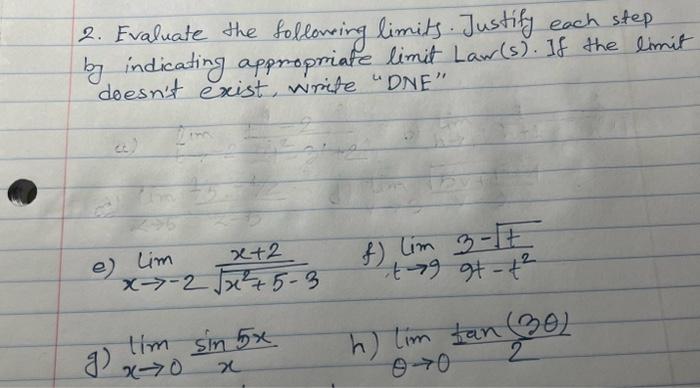 2. Evaluate the following limits. Justify each step
by indicating appropriate limit Law(s). If the limit
doesn't exist, write "DNE"
e) lim x→-2 (x+2)/(√(x²+5)-3)
f) lim t→9 (3-√t)/(9t-t²)
g) lim x→0 (sin 5x)/x
h) lim θ→0 (tan(3θ))/2